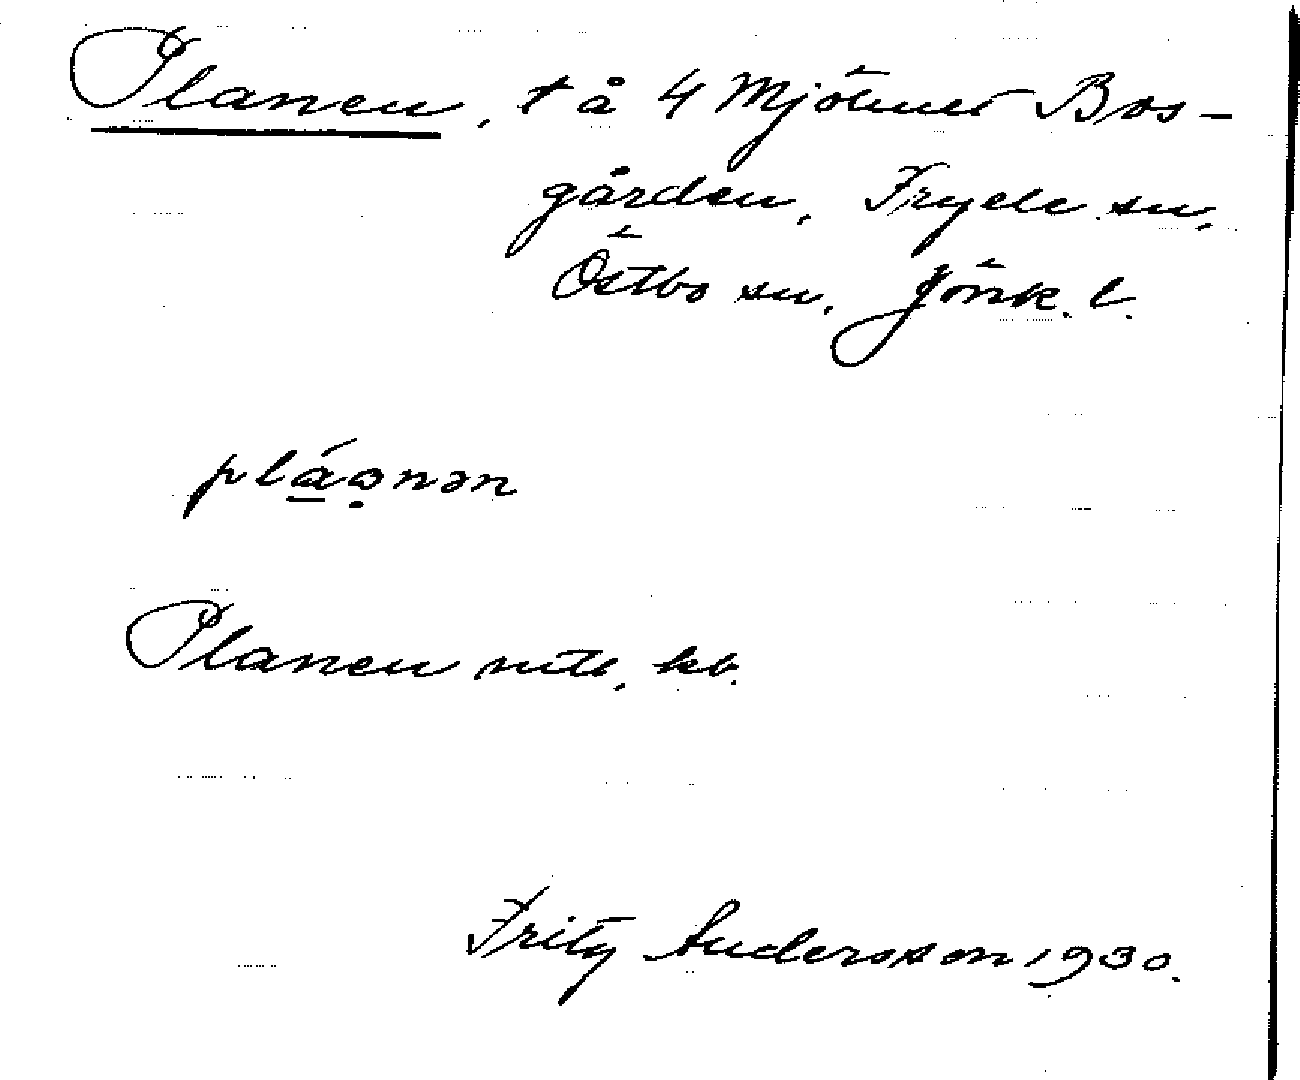 Planen, t å 4 Mjötenes Bos-
gården, Fryele sn,
Östbo sn, Jönk. l.
pláa̤nən
Planen mtl, kb.
Fritz Andersson 1930.